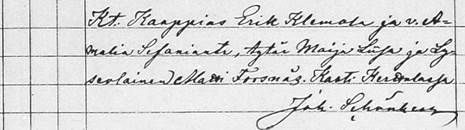 Kt. Kauppias Erik Klemola ja v. A-
malia Sefaniante, Tytär Maija Liisa ja Ly-
seolainen Matti Forsnäs. Kast.
Joh. Schönberg